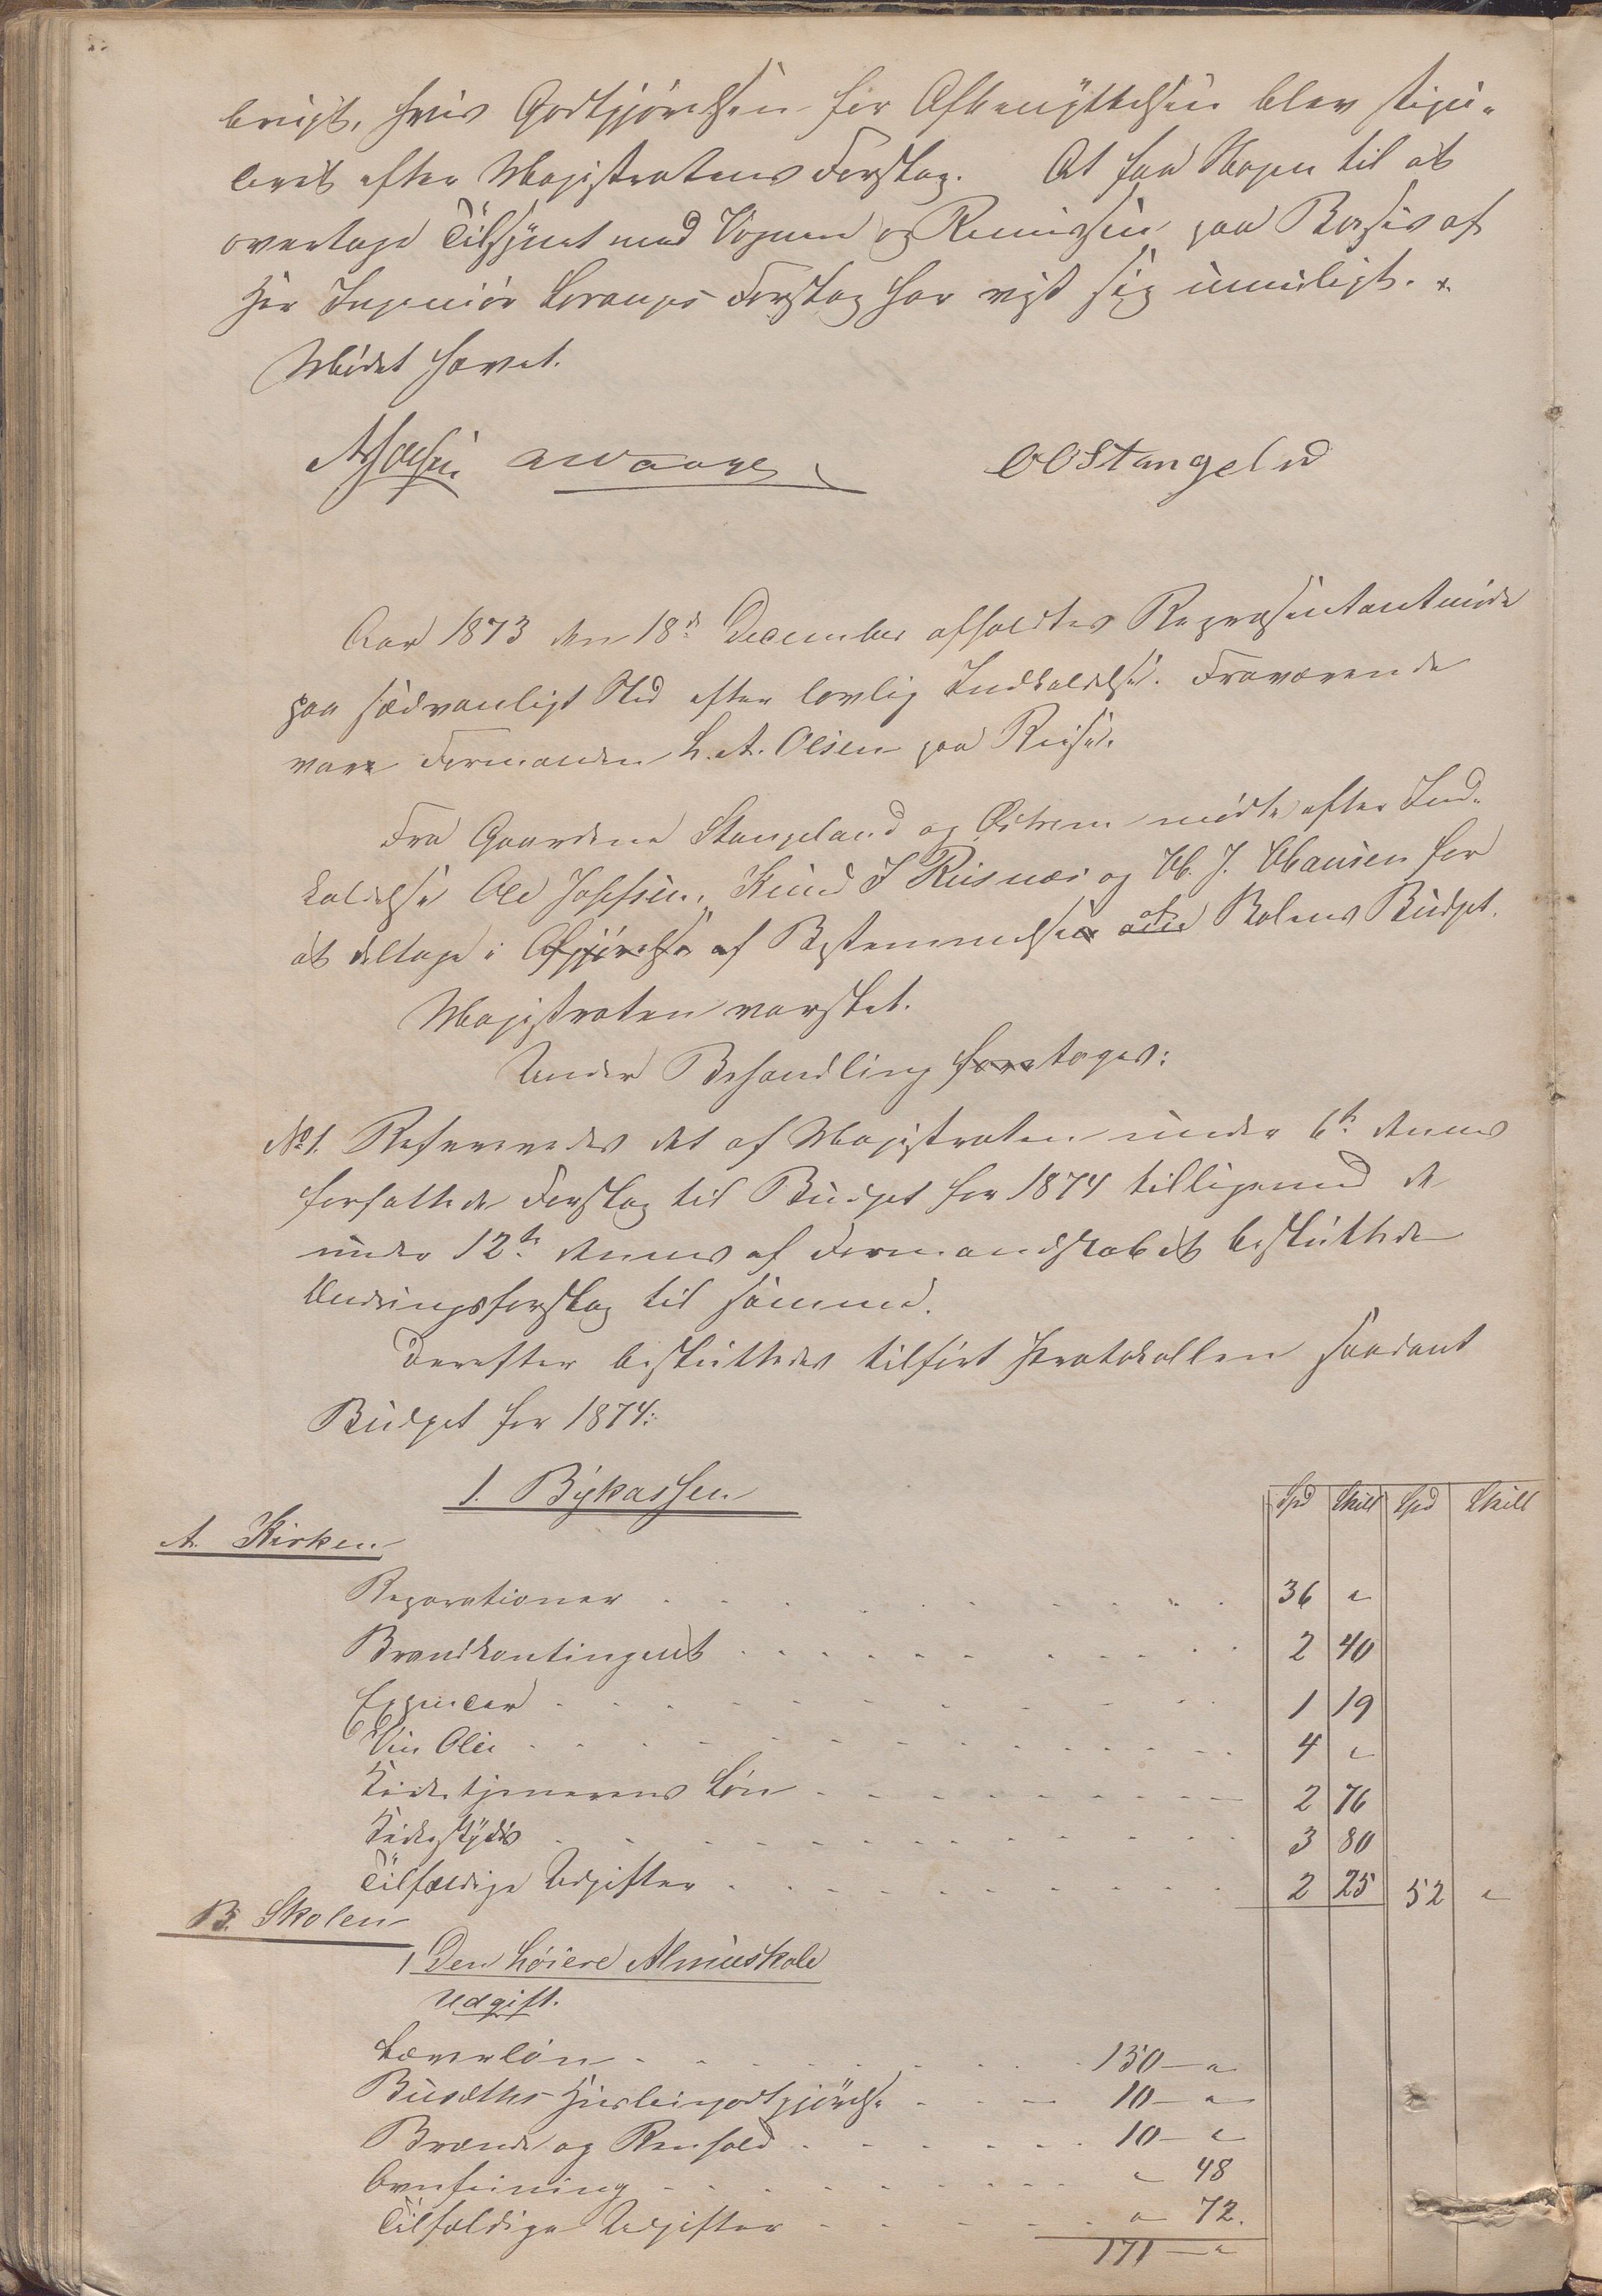 brugt, hvis Godtgjørelsen for Afbenyttelsen blev stipu-
leret efter Magistratens Forslag. At faa Nogen til at
overtage Tilsynet med Vognen og Remissen paa Basis af
Hr Ingeniør Loranges Forslag har vist sig umuligt.
Mødet hævet.
OOStangeland
Aar 1873 den 18de December afholdtes Repræsentantmøde
paa sædvanligt Sted efter lovlig Indkaldelse. Fraværende
vare Formanden L. A. Olsen paa Reise.
Fra Gaardene Stangeland og Østrem mødte efter Ind-
kaldelse Ole Josefsen, Knud J Risnæs og M. J. Mausen for
at deltage i Afgjørelse af Bestemmelsen af Skolens Budget.
Magistraten varslet.
Under Behandling foretoges:
No 1. Refereredes det af Magistraten under 6te dennes
forfattede Forslag til Budget for 1874 tilligemed de
under 12te dennes af Formandskabet besluttede
Ændringsforslag til samme.
Derefter besluttedes tilført Protokollen saadant
Budget for 1874:
1. Bykassen
Spd Skill Spd Skill
A. Kirken
Reparationer 36 "
Brandkontingent 2 40
1 19
Vin Olie 4 "
Kirketjenerens Løn 2 76
3 80
Tilfældige Udgifter 2 25 52 "
B. Skolen
1 Den høiere Almueskole
Udgift.
Lærerløn 150 — "
Busæths Huusleiegodtgjørelse 10 — "
Brænde og Renhold 10 — "
Ovnfeining " 48
Tilfældige Udgifter " 72.
171 — "